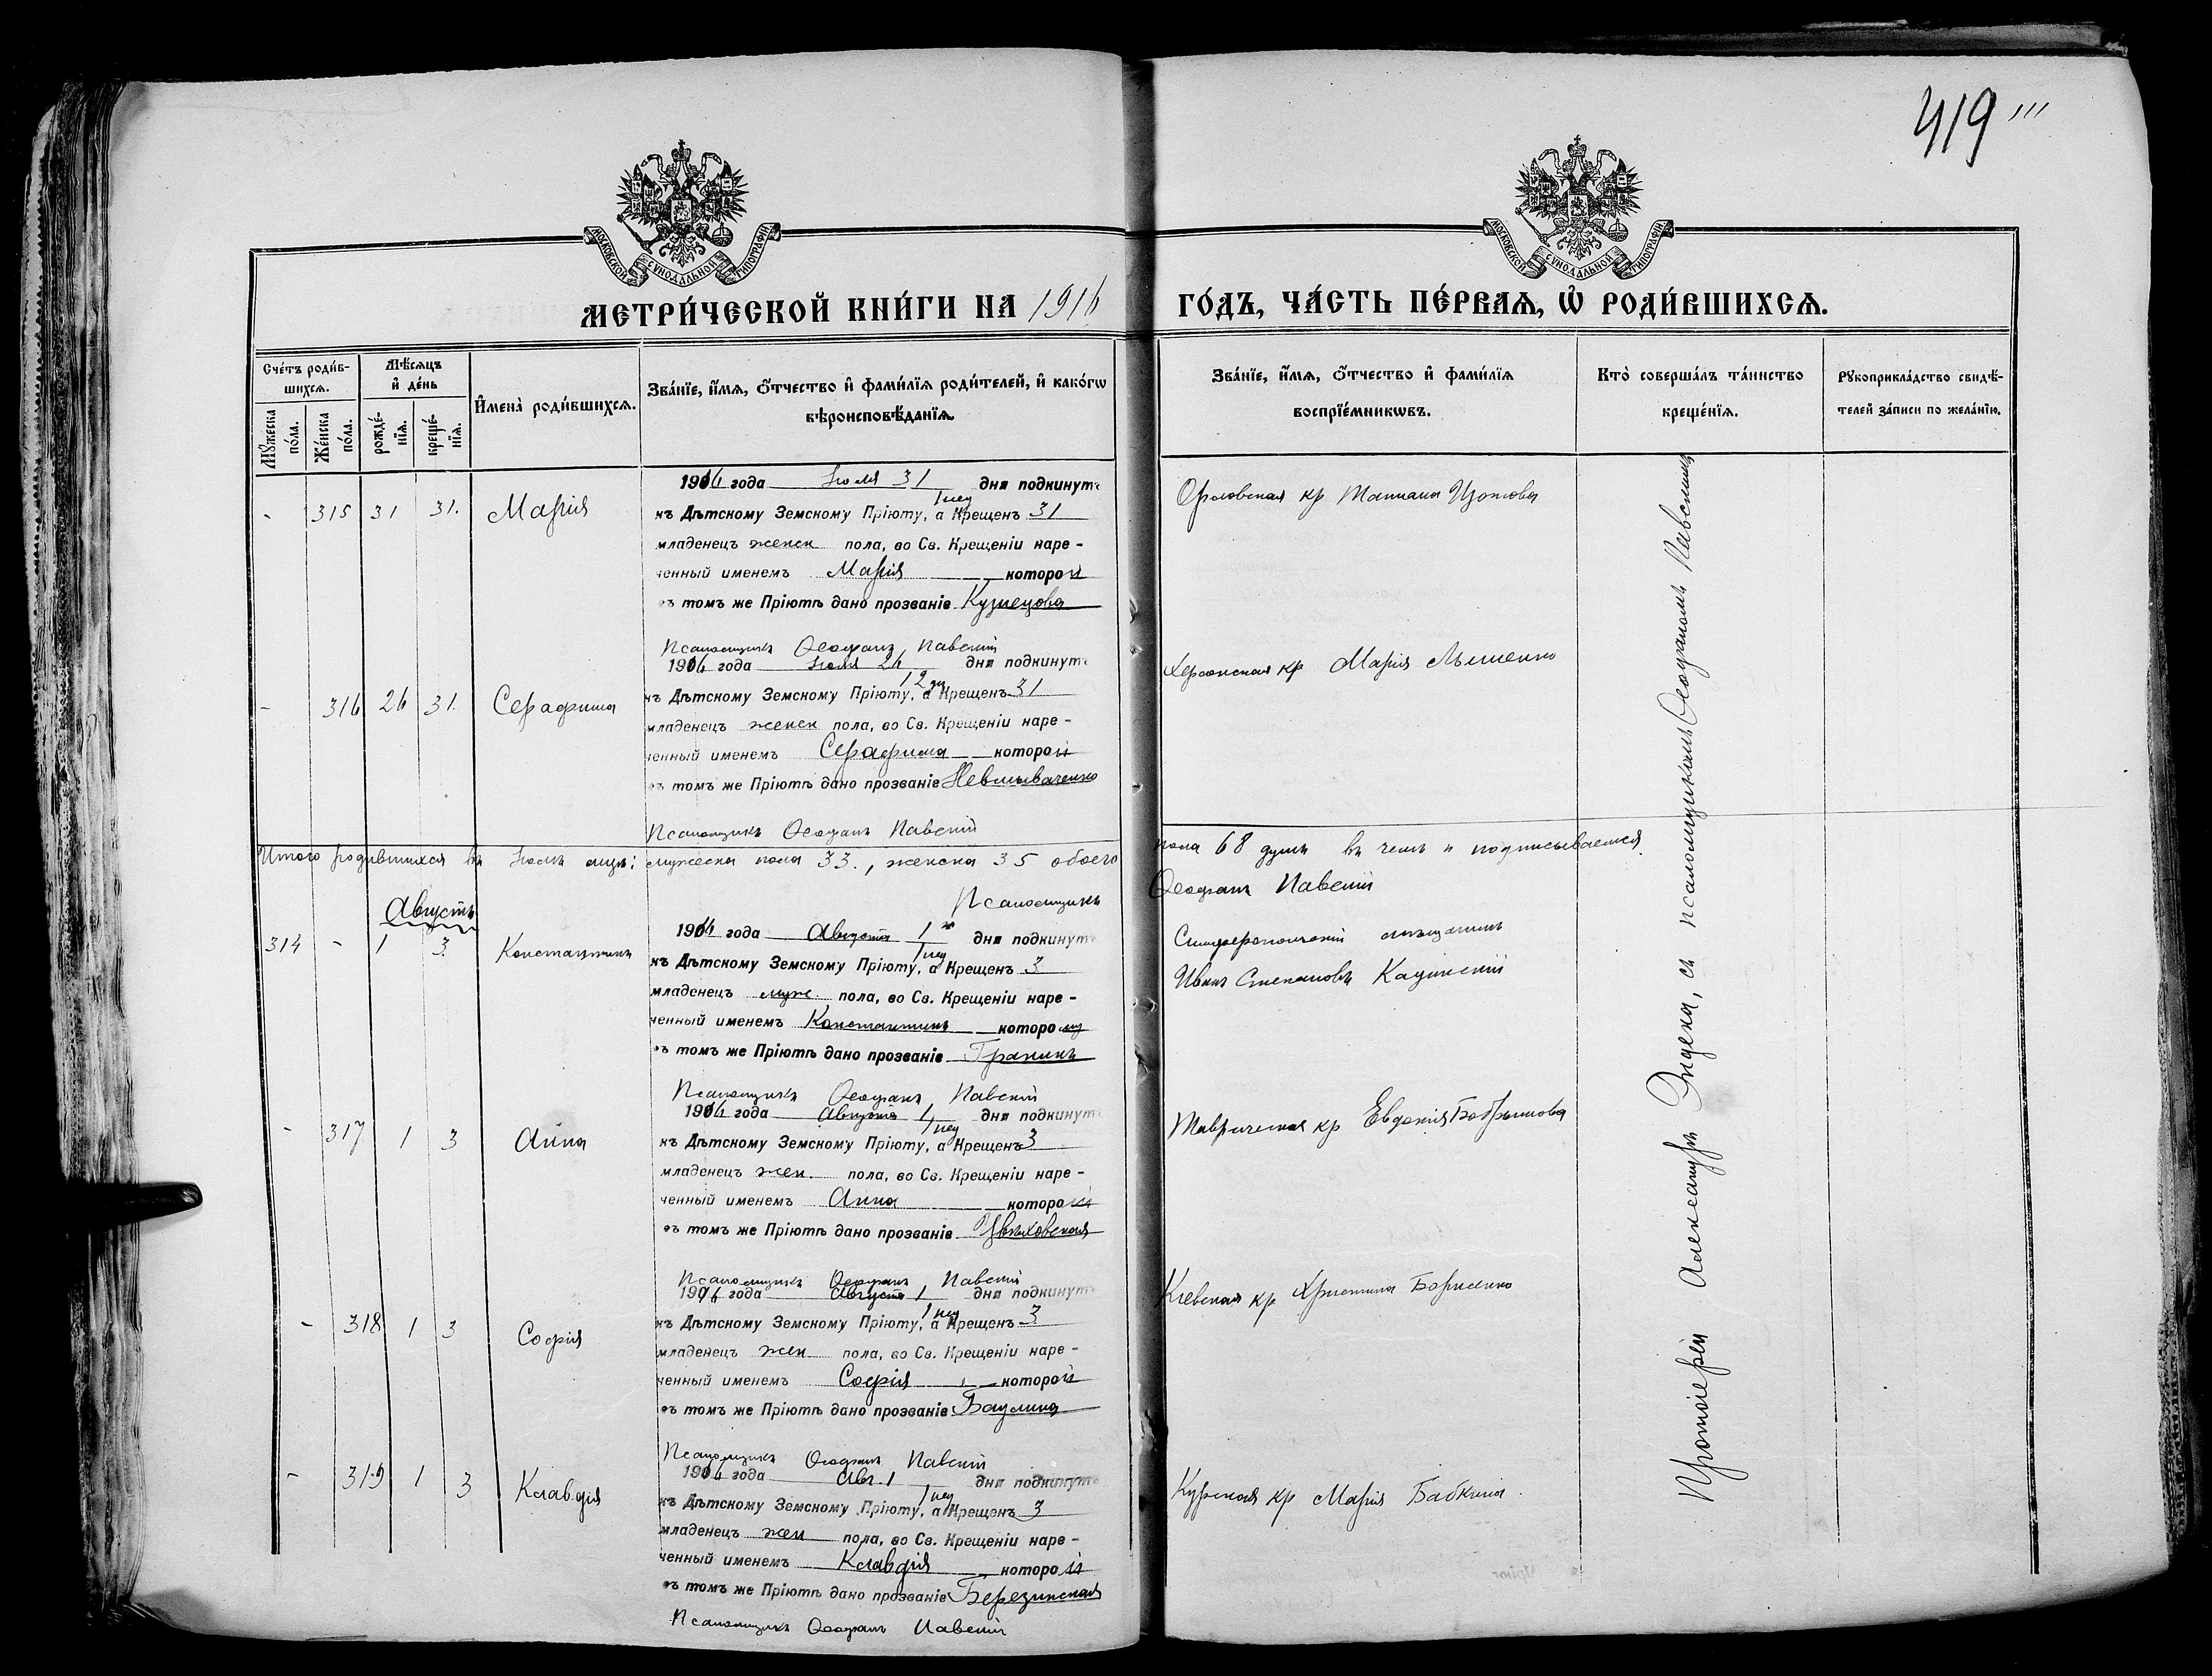 419
МОСКОВСКОЙ СѴНОДАЛЬНОЙ ТИПОГРАФІИ
МОСКОВСКОЙ СѴНОДАЛЬНОЙ ТИПОГРАФІИ
МЕТРИ́ЧЕСКОЙ КНИ́ГИ НА 1916 ГО́ДЪ, ЧА́СТЬ ПЕ́РВАЯ, Ѡ҆ РОДИ́ВШИХСЯ.
Сче́тъ роди́в-
шихся.
Мꙋжеска по́ла.
Же́нска по́ла.
Мѣ́сяцъ
и҆ де́нь
рожде́-
нїя.
креще́-
нїя.
И҆мена̀ роди́вшихся.
Зва́нїе, и҆́мя, о҆́тчество и҆ фами́лїя роди́телей, и҆ како́гѡ
вѣроисповѣ́данїя.
Зва́нїе, и҆́мя, о҆́тчество и҆ фами́лїя
воспрїе́мникѡвъ.
Кто̀ соверша́лъ та́инство
креще́нїя.
Рꙋкоприкла́дство свидѣ́-
телей за́писи по жела́нїю.
- 315 31 31. Марія
1916 года Іюля 31 дня подкинутъ
1 нед
къ Дѣтскому Земскому Пріюту, а Крещенъ 31
младенецъ женск пола, во Св. Крещеніи наре-
ченный именемъ Марія которой
въ томъ же Пріютѣ дано прозваніе Кузнецова
Псаломщикъ Ѳеофанъ Павскій
Орловская кр Татіана Изотова
- 316 26 31. Серафима
1916 года Іюля 26 дня подкинутъ
къ Дѣтскому Земскому Пріюту, а Крещенъ 31
младенецъ женск пола, во Св. Крещеніи наре-
ченный именемъ Серафима которой
въ томъ же Пріютѣ дано прозваніе Невмываченко
Псаломщикъ Ѳеофанъ Павскій
Херсонская кр Марія
Итого родившихся въ Іюлѣ мцѣ: мужеска пола 33., женска 35 обоего пола 68 душъ въ чемъ и подписывается
Псаломщикъ Ѳеофанъ Павскій
Августъ
314 - 1 3 Константинъ
1916 года Августа 1 дня подкинутъ
1 нед
къ Дѣтскому Земскому Пріюту, а Крещенъ 3
младенецъ муж. пола, во Св. Крещеніи наре-
ченный именемъ Константинъ которому
въ томъ же Пріютѣ дано прозваніе Гранинъ
Псаломщикъ Ѳеофанъ Павскій
Симферопольскій мѣщанинъ
Иванъ Степановъ
- 317 1 3 Анна
1916 года Августа 1 дня подкинутъ
1 нед
къ Дѣтскому Земскому Пріюту, а Крещенъ 3
младенецъ жен. пола, во Св. Крещеніи наре-
ченный именемъ Анна которой
въ томъ же Пріютѣ дано прозваніе
Псаломщикъ Ѳеофанъ Павскій
Таврическая кр Евдокія
- 318 1 3 Софія
1916 года Августа 1 дня подкинутъ
1 нед
къ Дѣтскому Земскому Пріюту, а Крещенъ 3
младенецъ жен пола, во Св. Крещеніи наре-
ченный именемъ Софія которой
въ томъ же Пріютѣ дано прозваніе Баулина
Псаломщикъ Ѳеофанъ Павскій
Кіевская кр Христина Борисенко
- 319 1 3 Клавдія
1916 года Авг. 1 дня подкинутъ
1 нед
къ Дѣтскому Земскому Пріюту, а Крещенъ 3
младенецъ жен пола, во Св. Крещеніи наре-
ченный именемъ Клавдія которой
въ томъ же Пріютѣ дано прозваніе Березинская
Псаломщикъ Ѳеофанъ Павскій
Курская кр Марія Бабкина.
Протоіерей Александръ Эндека, съ псаломщикомъ Ѳеофаномъ Павскимъ